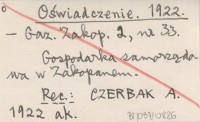 Oświadczenie. 1922.
– Gaz. Zakop. 2, nr 33.
Gospodarka samorządo
wa w Zakopanem.
Rec.: CZERBAK A.
1922 ak.